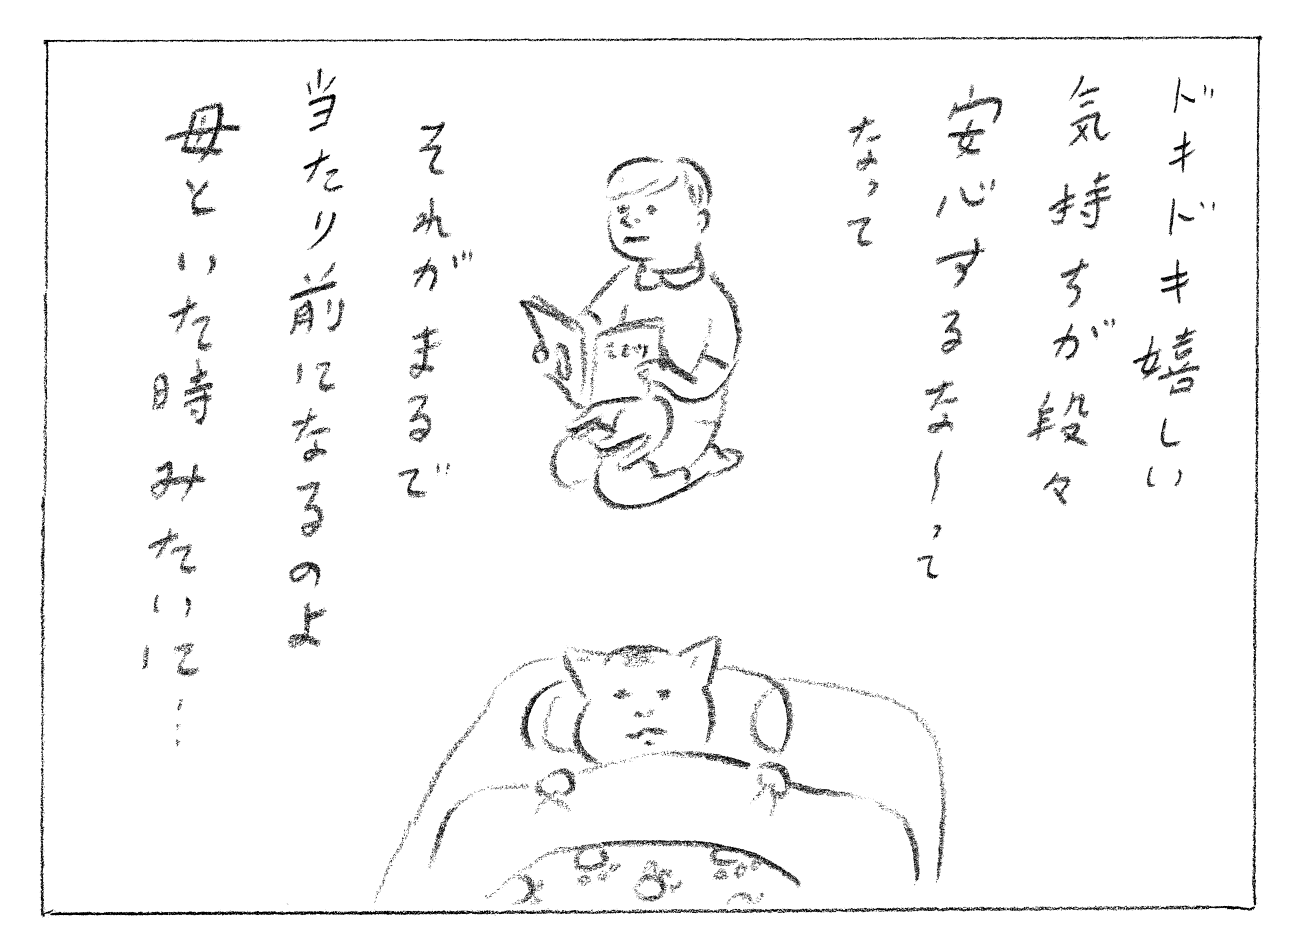 ドキドキ嬉しい
気持ちが段々
安心するなーって
なって
それがまるで
当たり前になるのよ
母といた時みたいに…